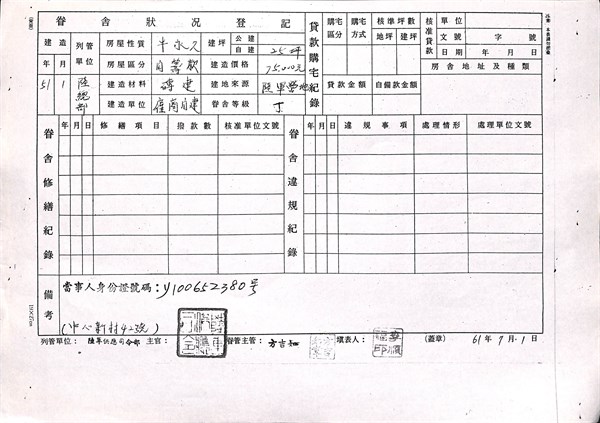 眷舍狀況登記
建造 列管單位 房屋性質 半永久 建坪 公建 自建 25坪
年 月 房屋區分 自籌款 建造價格 75,000元
51 1 陸總部 建造材料 磚建 建地來源 陸軍營地
建造單位 自建 眷舍等級 丁
貸款購宅紀錄
購宅區分 購宅方式 核准坪數 地坪 建坪 核准貸款 單位
文號 字 號
日期 年 月 日
房舍地址及種類
貸款金額 自備款金額
眷舍修繕紀錄
年 月 日 修繕項目 撥款數 核准單位文號
眷舍違規紀錄
年 月 日 違規事項 處理情形 處理單位文號
備考
當事人身份證號碼:y100652380号
(中心新村42號)
列管單位: 陸軍供應司令部 主官: 眷管主管: 方吉 填表人: (蓋章) 61年9月1日